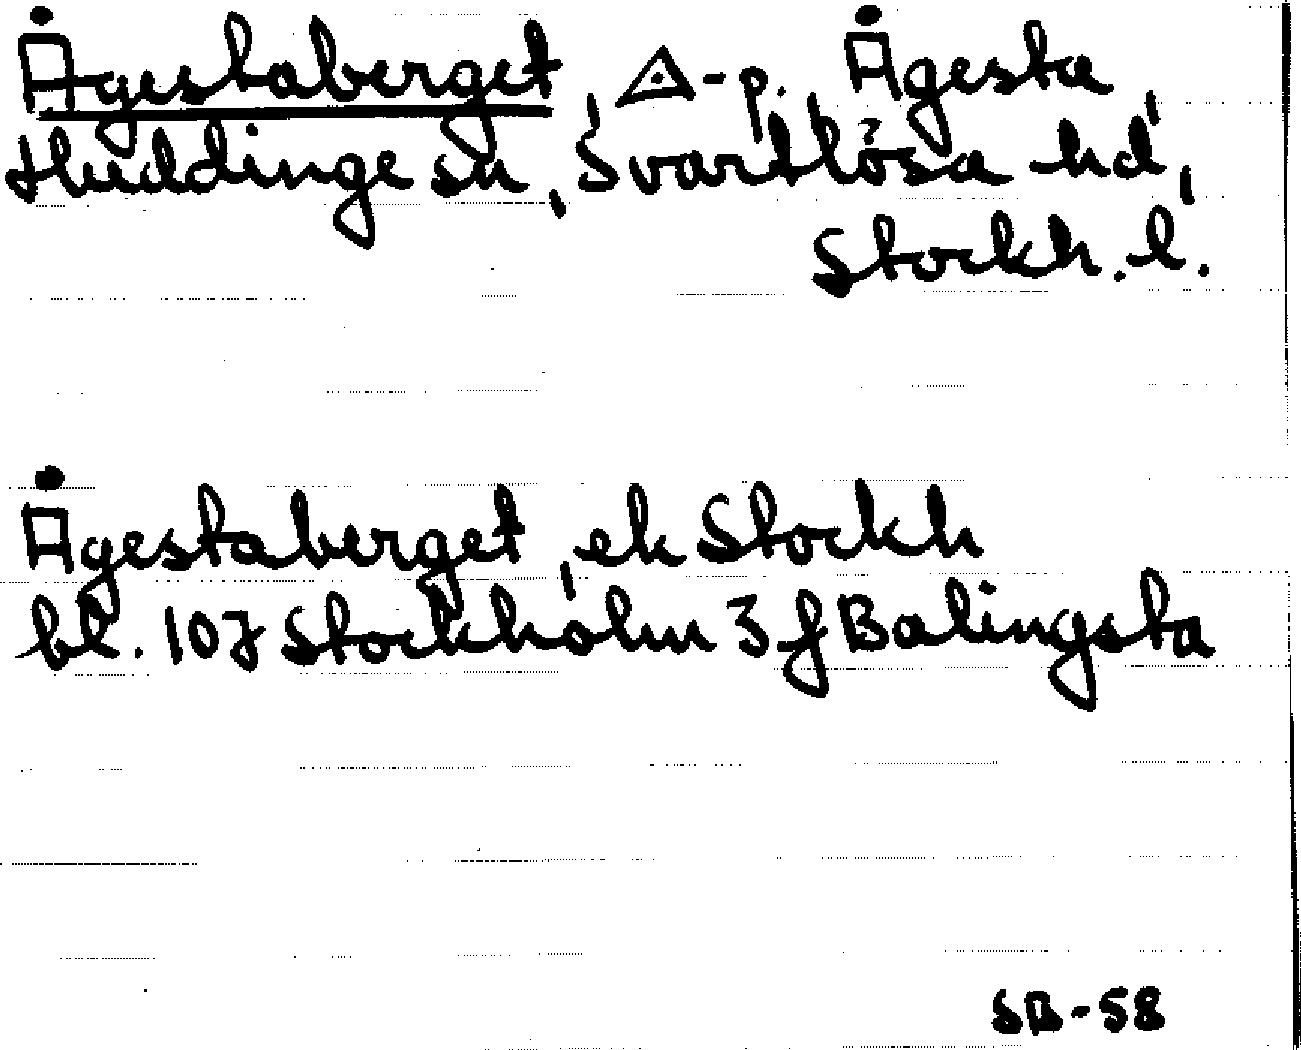 Ågestaberget, ◬-p. Ågesta,
Huddinge sn, Svartlösa hd,
Stockh. l.
Ågestaberget, ek Stockh
bl. 107 Stockholm 3 f Balingsta
SB-58